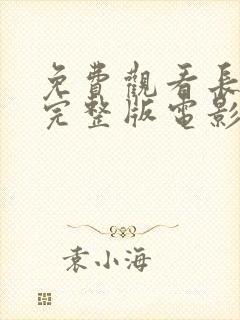 免費觀看長
完整版電影
袁小海